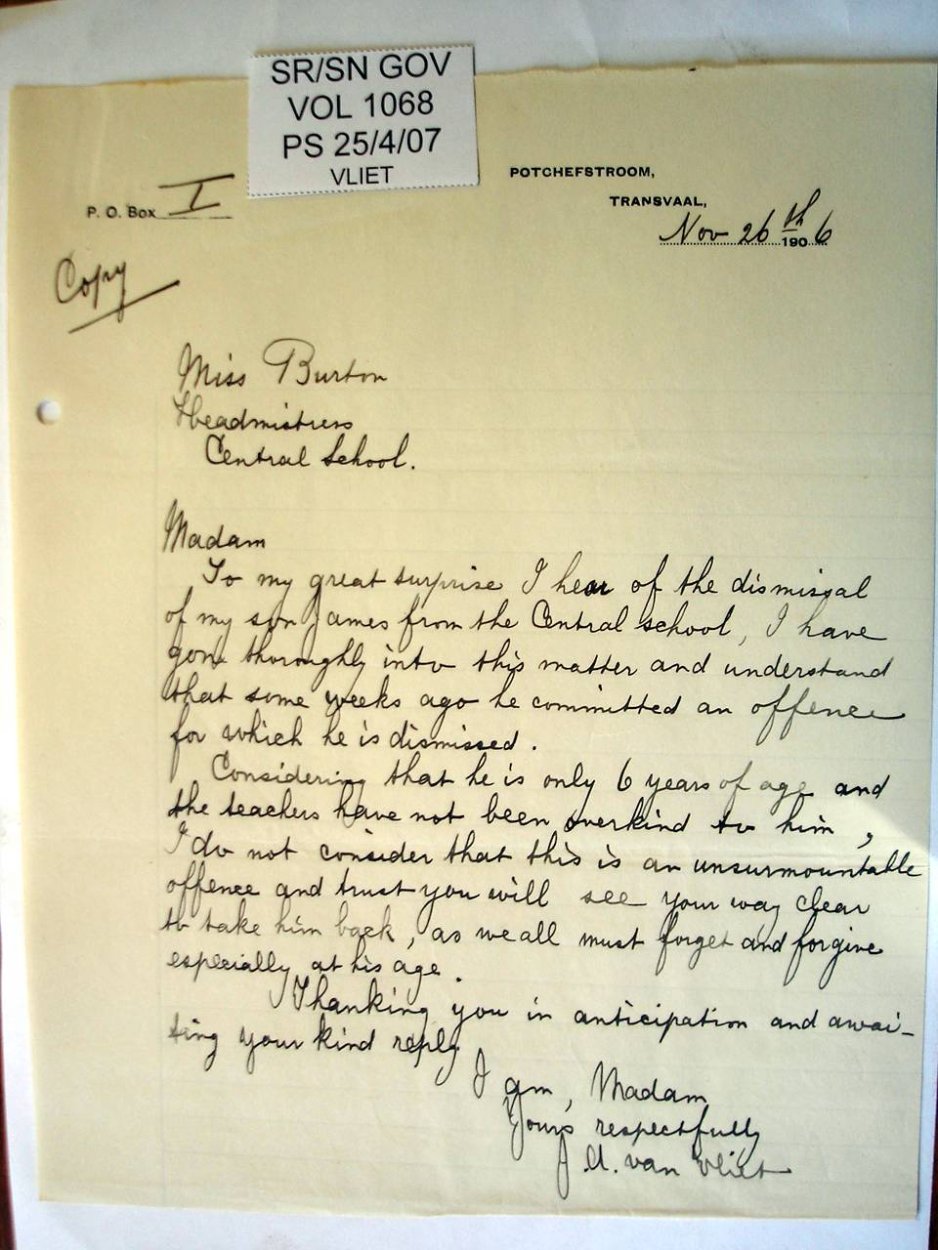 SR/SN GOV
VOL 1068
PS 25/4/07
VLIET
POTCHEFSTROOM,
TRANSVAAL,
P. O. Box I
Nov 26th 1906
Copy
Miss Burton
Headmistress
Central School.
Madam
To my great surprise I hear of the dismissal
of my son James from the Central school, I have
gone thoroughly into this matter and understand
that some weeks ago he committed an offence
for which he is dismissed.
Considering that he is only 6 years of age and
the teachers have not been overkind to him,
I do not consider that this is an unsurmountable
offence and trust you will see your way clear
to take him back, as we all must forget and forgive
especially at his age.
Thanking you in anticipation and awai-
ting your kind reply
I am, Madam
Yours respectfully
J. A. van Vliet